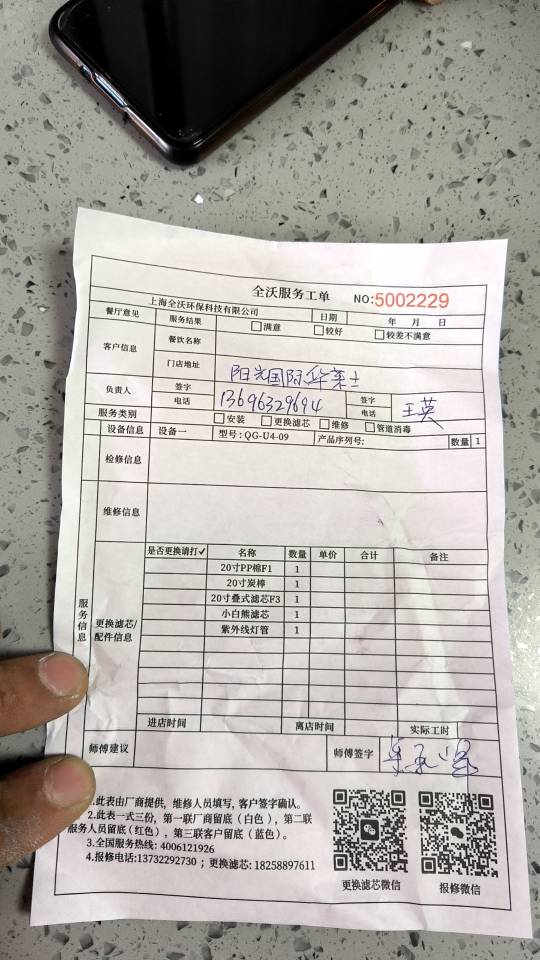 全沃服务工单 NO:5002229
上海全沃环保科技有限公司 日期 年 月 日
餐厅意见 服务结果 满意 较好 较差不满意
客户信息 餐饮名称
门店地址 阳光国际华莱士
负责人 签字 签字
电话 13696329694 电话 王英
服务类别 安装 更换滤芯 维修 管道消毒
设备信息 设备一 型号:QG-U4-09 产品序列号: 数量 1
检修信息
维修信息
服务信息
更换滤芯/配件信息
是否更换请打✓ 名称 数量 单价 合计 备注
20寸PP棉F1 1
20寸炭棒 1
20寸叠式滤芯F3 1
小白熊滤芯 1
紫外线灯管 1
进店时间 离店时间 实际工时
师傅建议 师傅签字
1.此表由厂商提供, 维修人员填写, 客户签字确认。
2.此表一式三份, 第一联厂商留底(白色), 第二联
服务人员留底(红色), 第三联客户留底(蓝色)。
3.全国服务热线: 4006121926
4.报修电话:13732292730 ; 更换滤芯: 18258897611
更换滤芯微信 报修微信